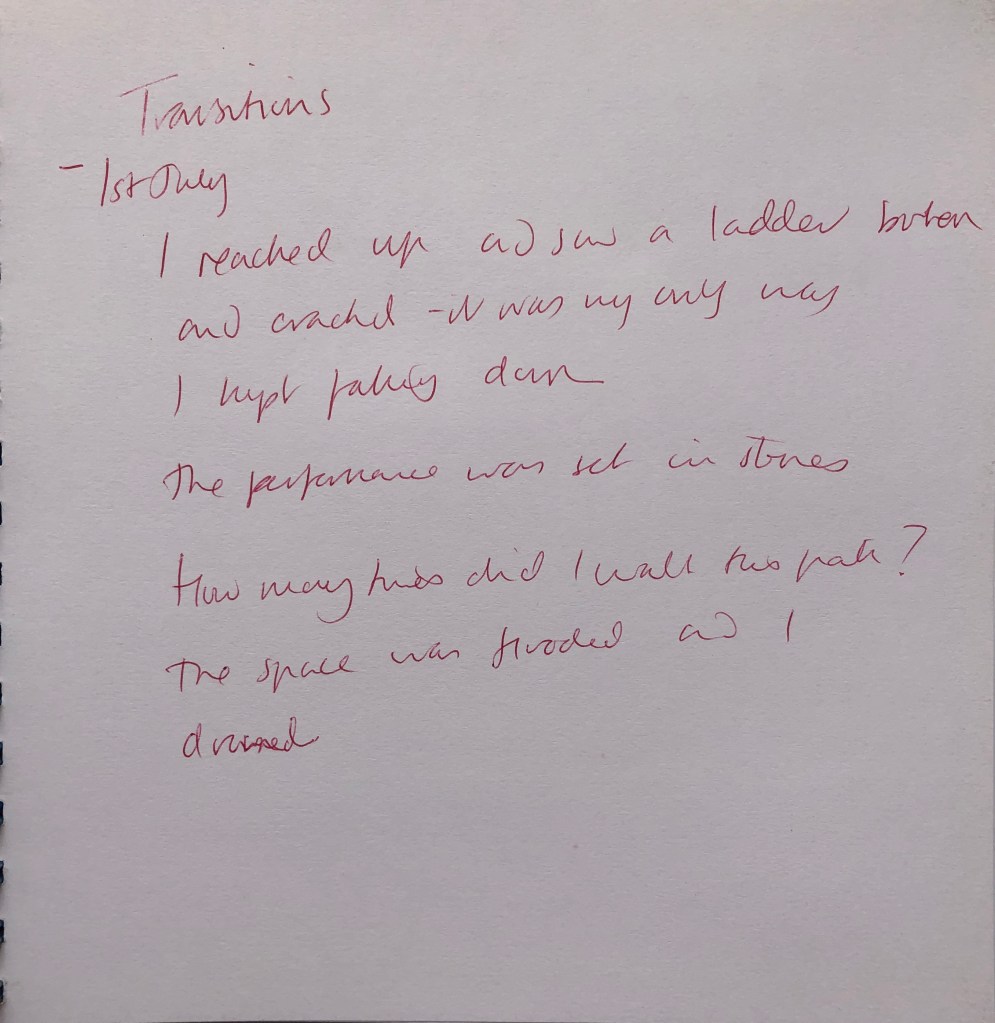 Transitions
- 1st July
I reached up and saw a ladder broken
and cracked - it was my only way
I kept falling down
The performance was set in stones
How many times did I walk this path?
The space was flooded and I
drowned